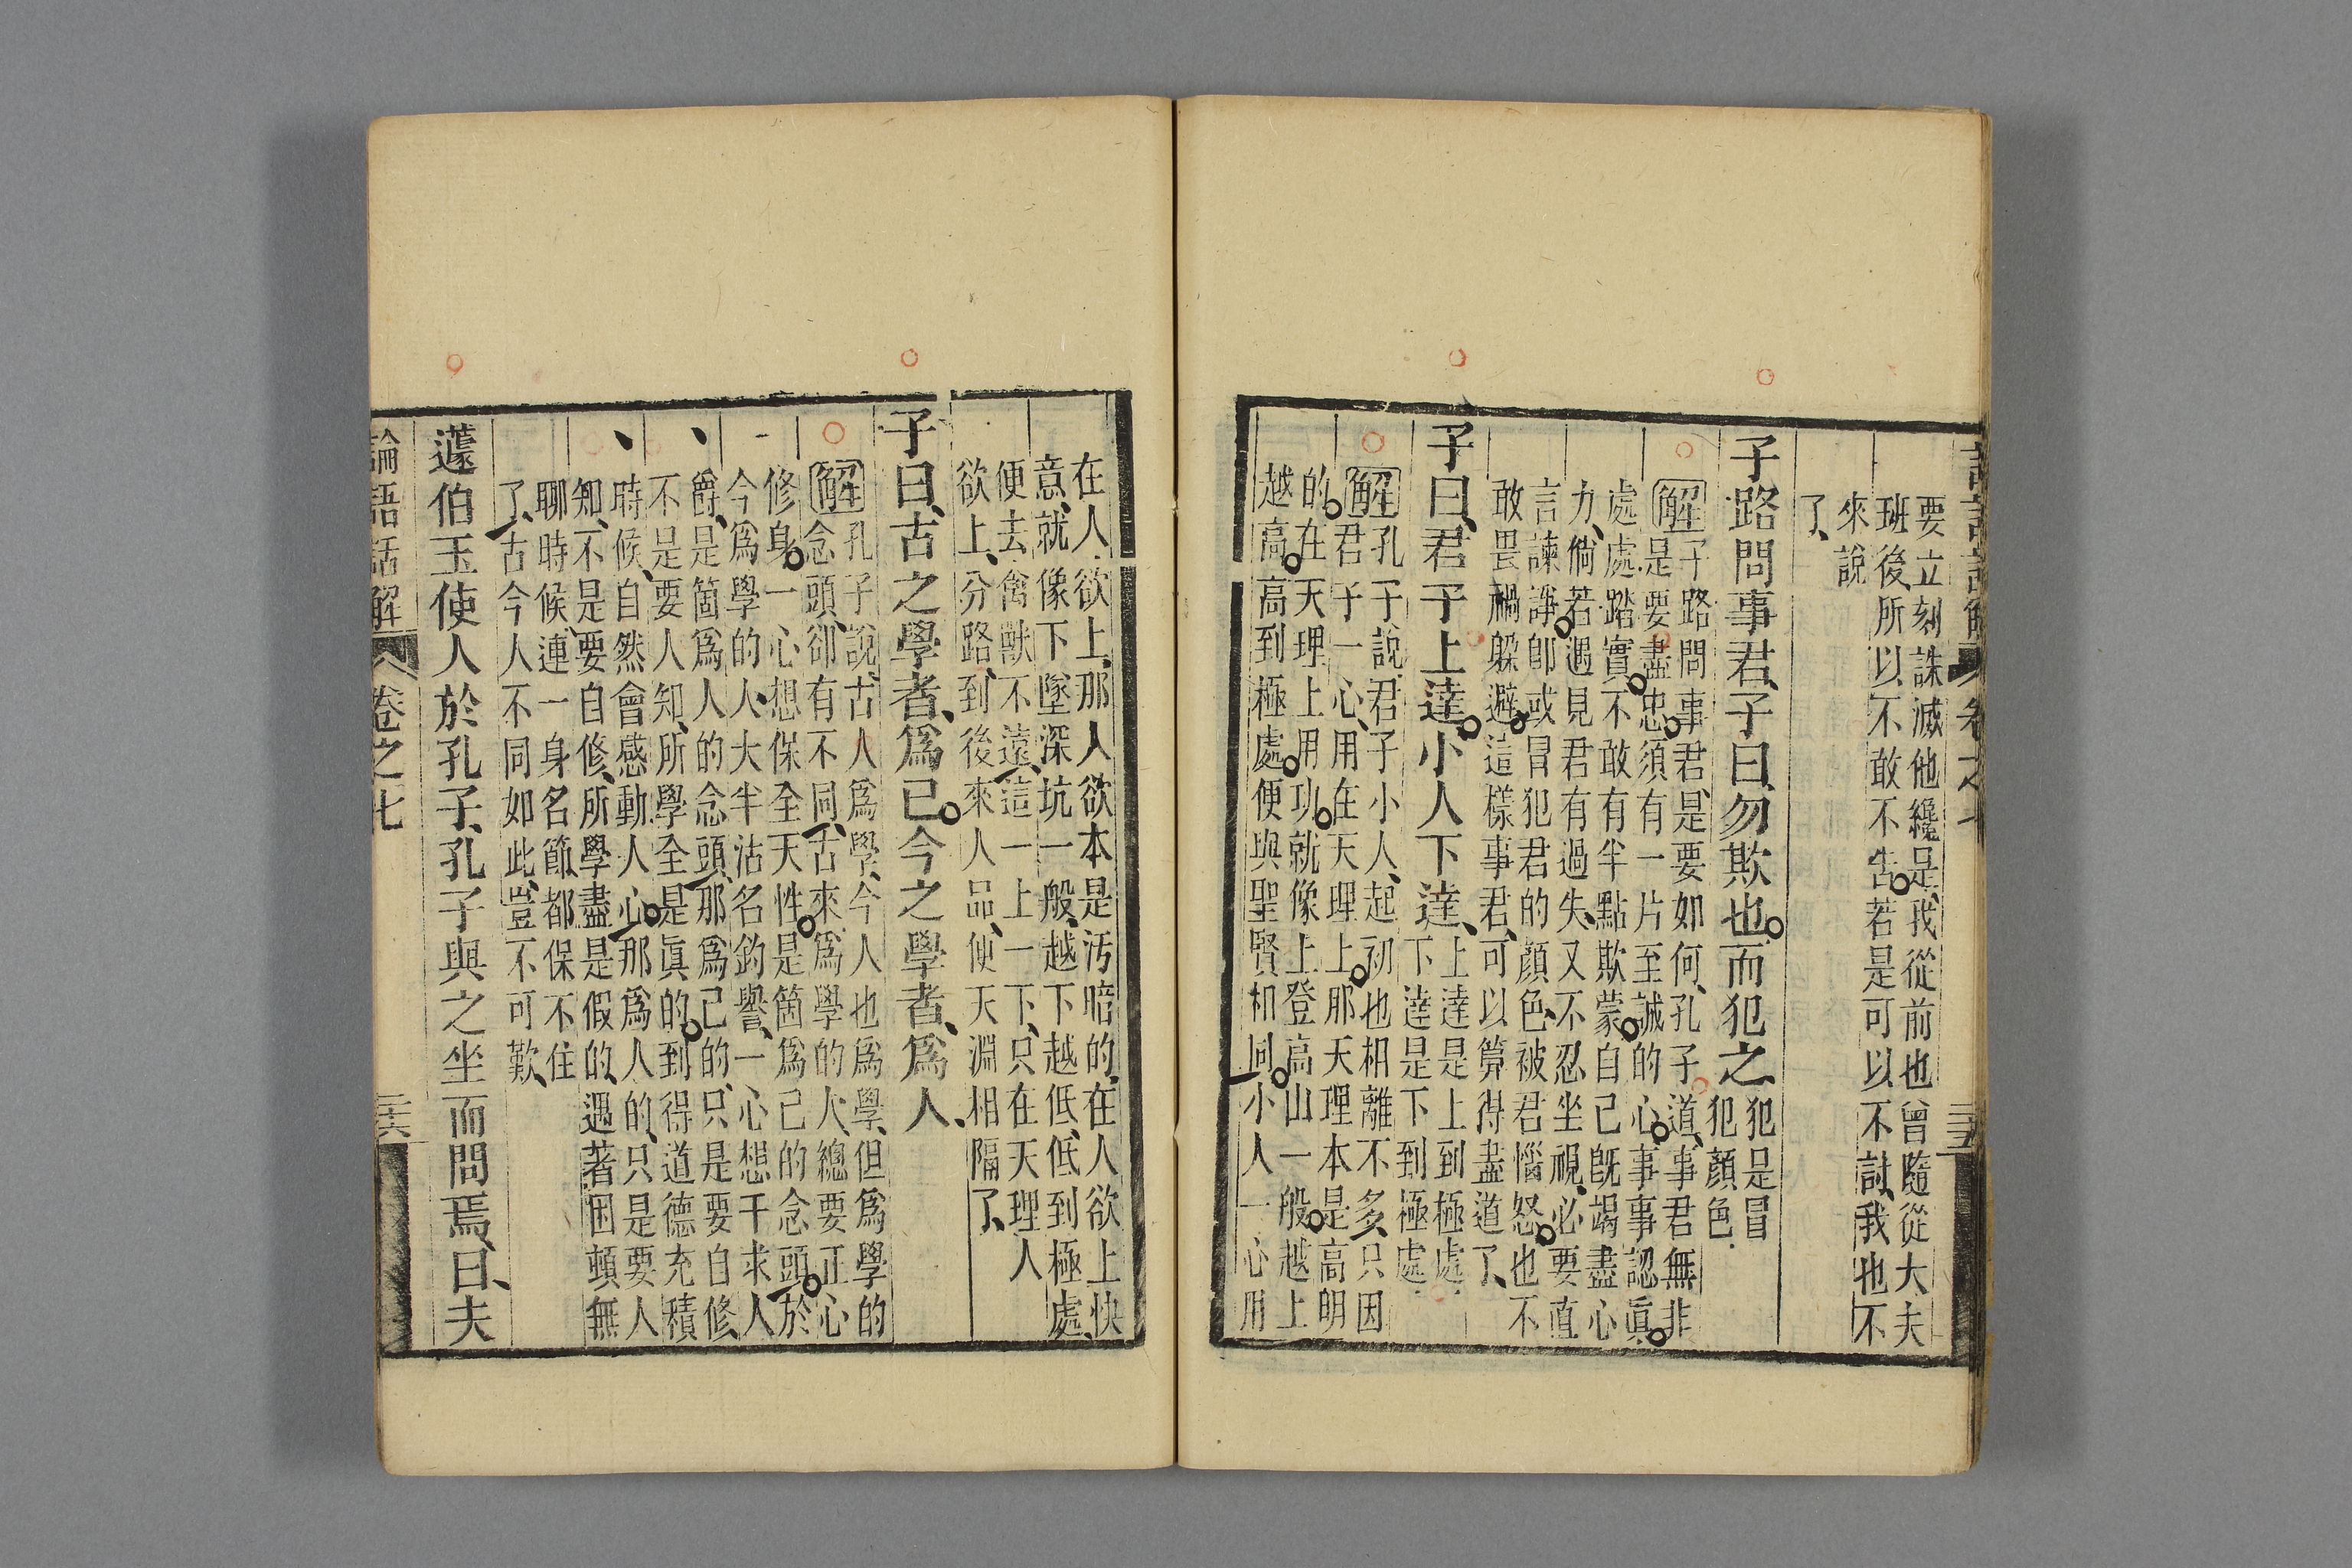 要立刻誅滅他纔是、我從前也曾隨從大夫
班後、所以不敢不告若是可以不討、我也不
來說
了、
子路問事君、子曰、勿欺也、而犯之、
犯是冒
犯顏色
解
子路問事君、是要如何、孔子道、事君無非
是要盡忠、須有一片至誠的心、事事認眞、
處處踏實、不敢有半點欺蒙、自己既竭盡心
力、倘若遇見君有過失、又不忍坐視、必要直
言諫諍、卽或冒犯君的顏色、被君惱怒、也不
敢畏禍躱避、這樣事君、可以算得盡道了、
子曰、君子上達、小人下達、
上達是上到極處
下達是下到極處
解
孔子說、君子小人、起初也相離不多、只因
君子一心、用在天理上、那天理本是高明
的、在天理上用功、就像上登高山一般、越上
越高、高到極處、便與聖賢相同、小人一心用
在人欲上、那人欲本是汚暗的、在人欲上快
意、就像下墜深坑一般、越下越低、低到極處、
便去禽獸不遠、這一上一下、只在天理人
欲上、分路、到後來人品、便天淵相隔了、
子曰、古之學者、爲己、今之學者、爲人、
解
孔子說、古人爲學、今人也爲學、但爲學的
念頭、卻有不同、古來爲學的人、總要正心
修身、一心想保全天性、是箇爲己的念頭、於
今爲學的人、大半沽名釣譽、一心想干求人
爵、是箇爲人的念頭、那爲己的、只是要自修、
不是要人知、所學全是眞的、到得道德充積
時候、自然會感動人心、那爲人的、只是要人
知、不是要自修、所學盡是假的、遇著困頓無
聊時候、連一身名節、都保不住
了、古今人不同如此、豈不可歎、
蘧伯玉使人於孔子、孔子與之坐而問焉、曰、夫
論語話解
卷之七
三十六